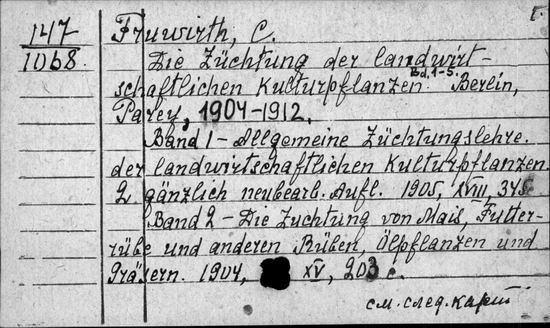 147
1068.
Fruwirth, C.
Die Züchtung der landwirt-
schaftlichen Kulturpflanzen. Bd. 1-5. Berlin,
Parey, 1904-1912.
Band 1 - Allgemeine Züchtungslehre.
der landwirtschaftlichen Kulturpflanzen.
2. gänzlich neubearb. Aufl. 1905, XVIII, 345
Band 2 - Die Zuchtung von Mais, Futter-
rübe und anderen Rüben, Ölpflanzen und
Gräsern. 1904, XV, 203 с.
см. след. карт